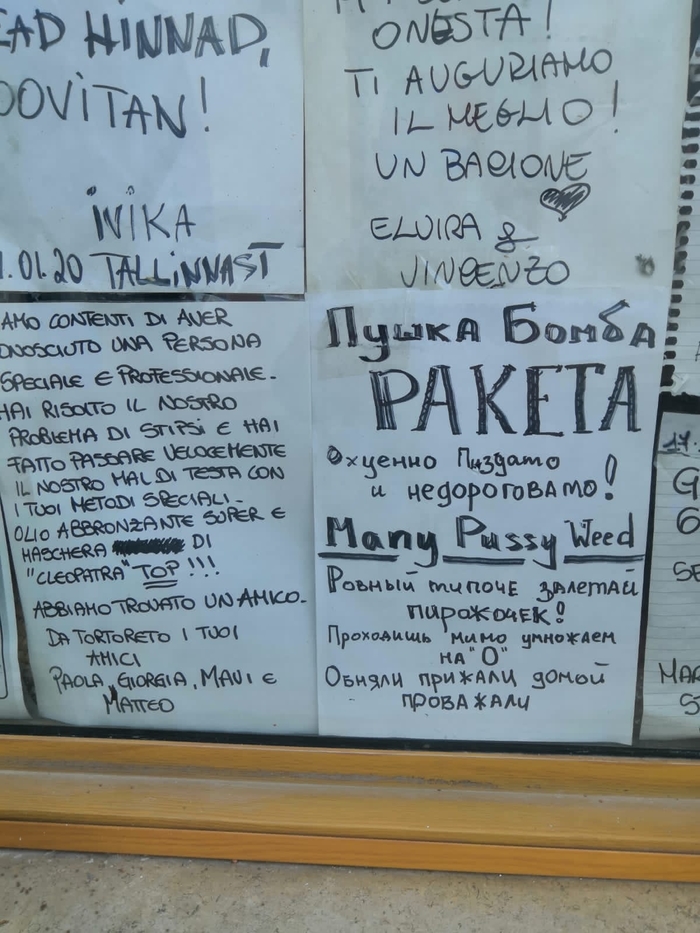 EAD HINNAD,
OOVITAN!
INIKA
1.01.20 TALLINNAST
ONESTA!
TI AUGURIAMO
IL MEGLIO!
UN BACIONE
ELVIRA &
VINCENZO
AMO CONTENTI DI AVER
ONOSCIUTO UNA PERSONA
SPECIALE E PROFESSIONALE.
HAI RISOLTO IL NOSTRO
PROBLEMA DI STIPSI E HAI
FATTO PASSARE VELOCEMENTE
IL NOSTRO MAL DI TESTA CON
I TUOI METODI SPECIALI.
OLIO ABBRONZANTE SUPER E
MASCHERA DI
"CLEOPATRA" TOP!!!
ABBIAMO TROVATO UN AMICO.
DA TORTORETO I TUOI
AMICI
PAOLA, GIORGIA, MAVI E
MATTEO
Пушка Бомба
РАКЕТА
Охуенно Пиздато
и недороговато!
Many Pussy Weed
Ровный типоче залетай
пирожочек!
Проходишь мимо умножаем
на "О"
Обняли прижали домой
проважали
17.
G
6
SE
MAR
S